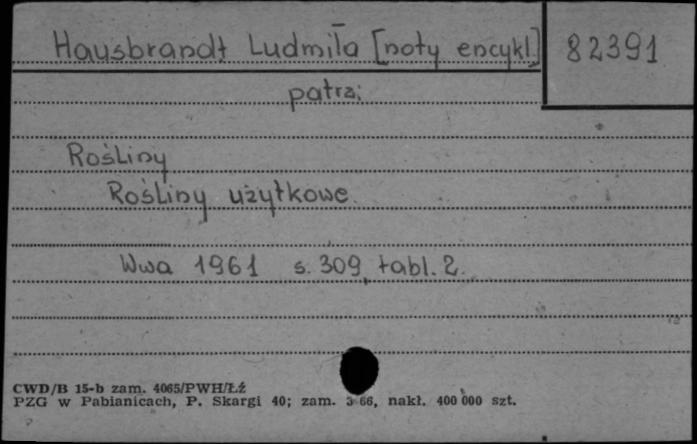 Hausbrandt Ludmiła [noty encykl.] 82391
patrz:
Rośliny
Rośliny użytkowe
Wwa 1961 s. 309, tabl. 2.
CWD/B 15-b zam. 4065/PWH/ŁŹ
PZG w Pabianicach, P. Skargi 40; zam. 3 66, nakł. 400 000 szt.